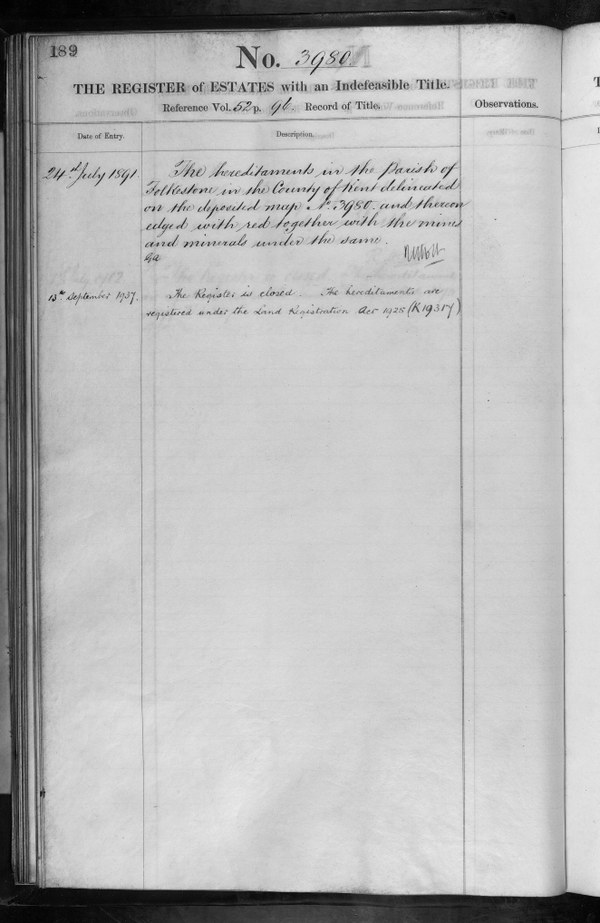 189
No. 3980
THE REGISTER of ESTATES with an Indefeasible Title.
Reference Vol. 52 p. 96. Record of Title.
Observations.
Date of Entry.
Description.
24th July 1891
The hereditaments in the Parish of
Folkestone in the County of Kent delineated
on the deposited map No. 3980 and thereon
edged with red together with the mines
and minerals under the same.
13th September 1937.
The Register is closed. The hereditaments are
registered under the Land Registration Act 1925 (K19317)